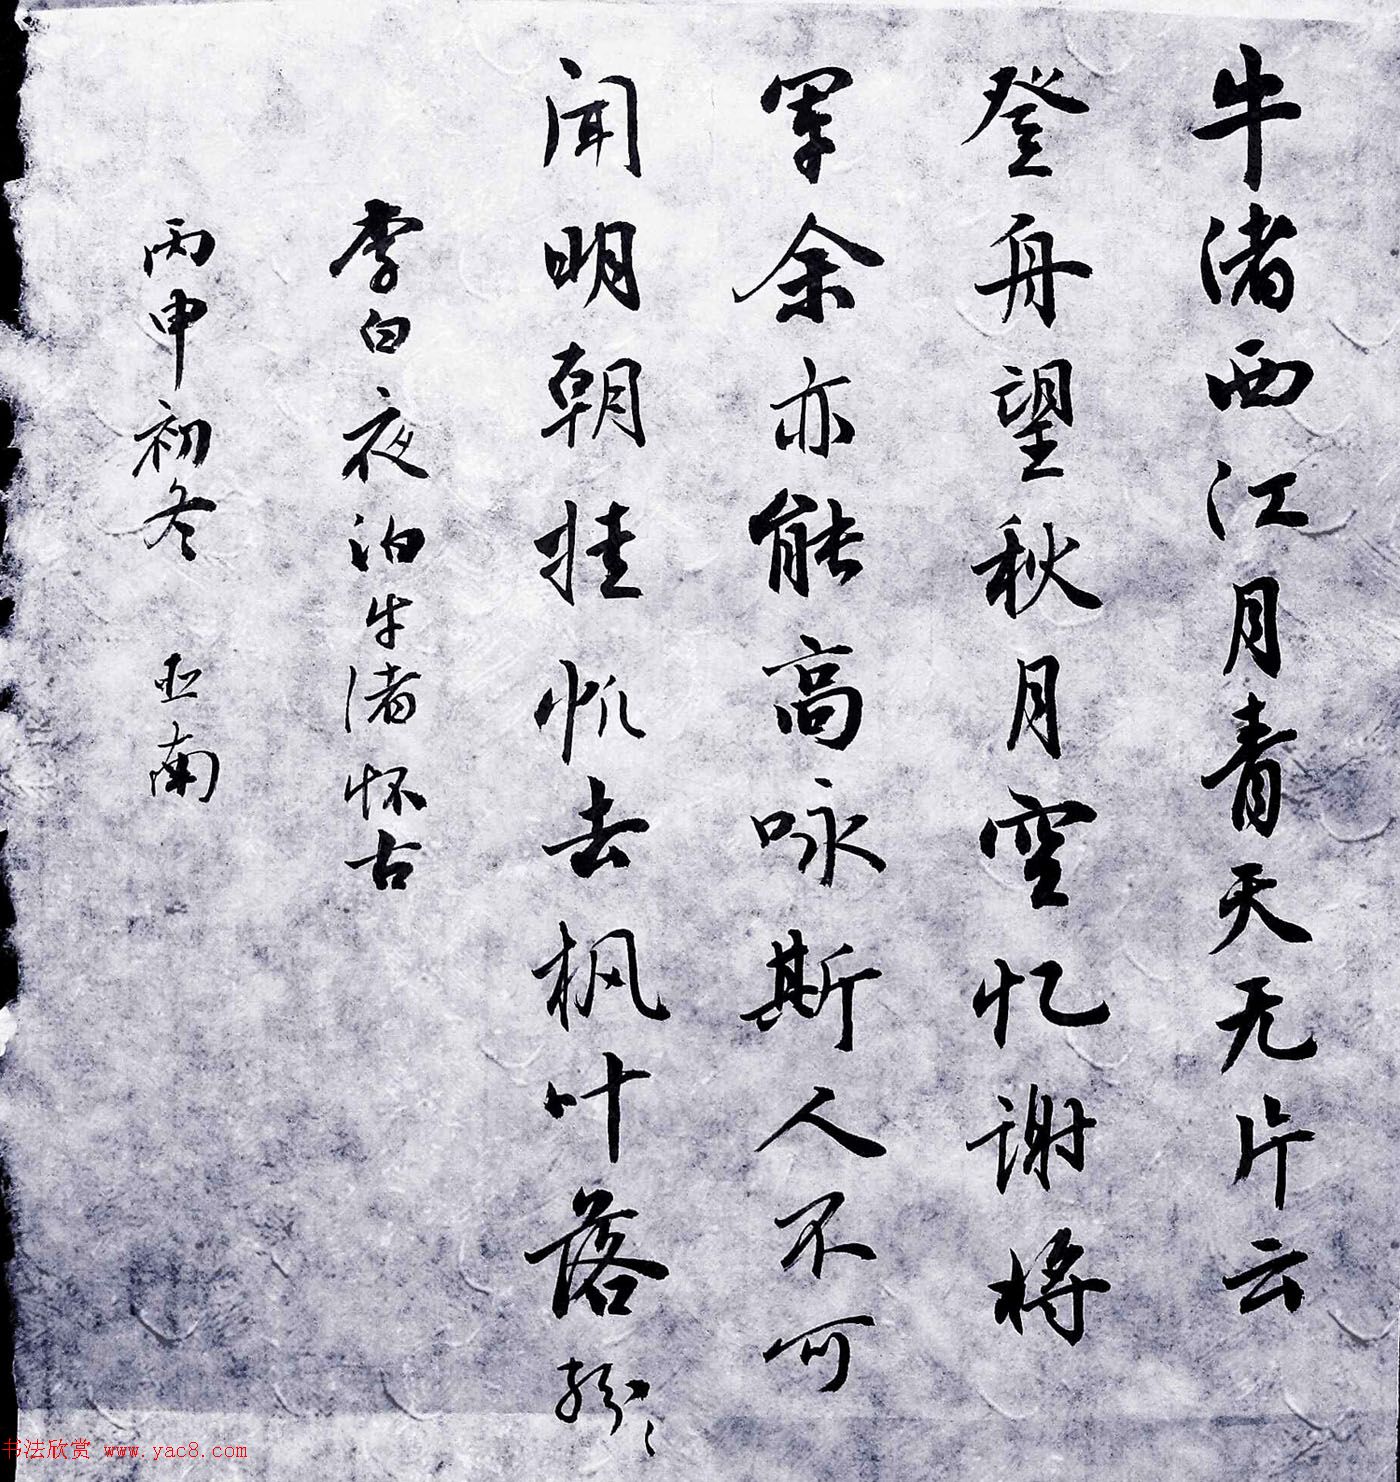 牛渚西江月青天无片云
登舟望秋月空忆谢将
军余亦能高咏斯人不可
闻明朝挂帆去枫叶落纷〻
李白夜泊牛渚怀古
丙申初冬 亚南
书法欣赏 www.yac8.com